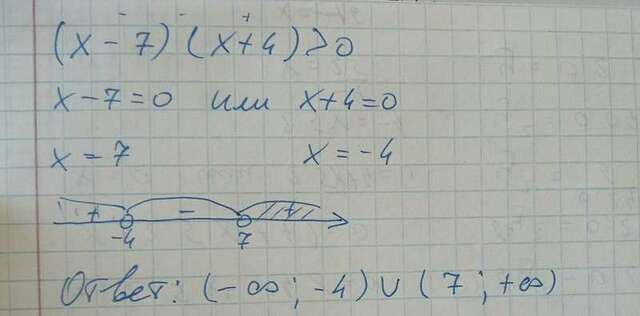 (x - 7) (x+4) > 0
x - 7 = 0 или x+4=0
x = 7 x = -4
+ - +
-4 7
Ответ: (-∞; -4) ∪ (7; +∞)